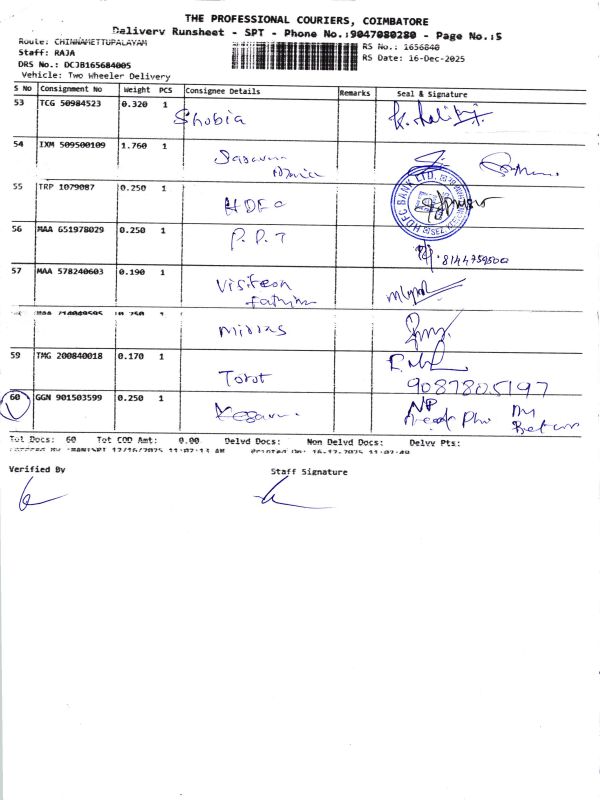 THE PROFESSIONAL COURIERS, COIMBATORE
Delivery Runsheet - SPT - Phone No.:9047080280 - Page No.:5
Route: CHINNAMETTUPALAYAM
RS No.: 1656840
Staff: RAJA
RS Date: 16-Dec-2025
DRS No.: DCJB165684005
Vehicle: Two Wheeler Delivery
S No Consignment No Weight PCS Consignee Details Remarks Seal & Signature
53 TCG 50984523 0.320 1 Shobia
54 IXM 509500109 1.760 1
55 TRP 1079087 0.250 1 HDFC
HDFC BANK LTD.
56 MAA 651978029 0.250 1 P.P.T
8144759500
57 MAA 578240603 0.190 1 Visteon
Fathima
MAA 714049595 0.250 1 Midas
59 TMG 200840018 0.170 1 Torot
9087805197
60 GGN 901503599 0.250 1
NP
Tot Docs: 60 Tot COD Amt: 0.00 Delvd Docs: Non Delvd Docs: Delvy Pts:
12/16/2025 11:07:13 AM Printed On: 16-12-2025
Verified By Staff Signature